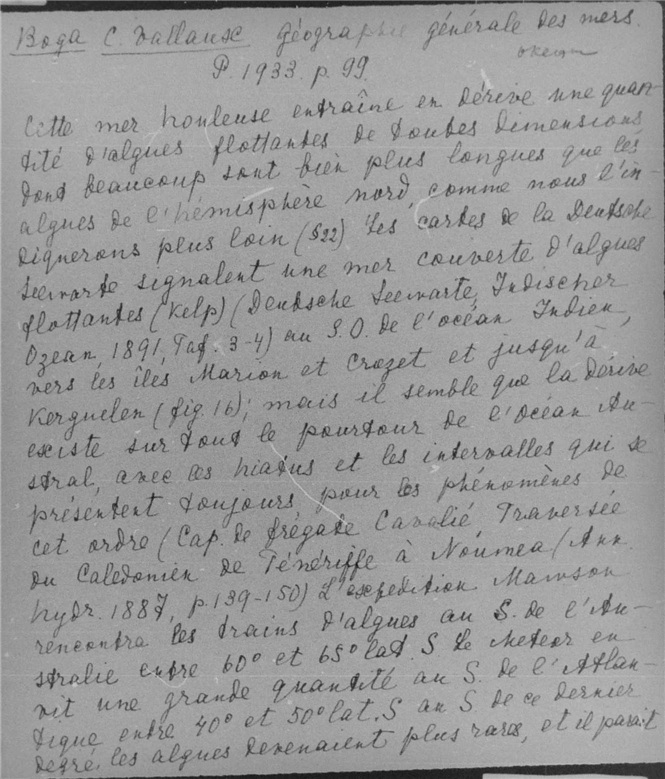 Вода C. Vallausc géographie générale des mers.
океан
P. 1933. p. 99.
Cette mer houleuse entraîne en dérive une quan-
tité d'algues flottantes de toutes dimensions
dont beaucoup sont bien plus longues que les
algues de l'hémisphère nord, comme nous l'in-
diquerons plus loin (§22) Les cartes de la Deutsche
Seewarte signalent une mer couverte d'algues
flottantes (Kelp) (Deutsche Seewarte, Indischer
Ozean, 1891, Taf. 3-4) au S.O. de l'océan Indien,
vers les îles Marion et Crozet et jusqu'à
Kerguelen (fig. 16); mais il semble que la dérive
existe sur tout le pourtour de l'Océan Au-
stral, avec les hiatus et les intervalles qui se
présentent toujours pour les phénomènes de
cet ordre (Cap. de frégate Cavalié, Traversée
du Caledonien de Ténériffe à Nouméa (Ann.
hydr. 1887, p. 139-150) L'expédition Mawson
rencontra les trains d'algues au S. de l'Au-
stralie entre 60° et 65° lat. S Le Meteor en
vit une grande quantité au S. de l'Atlan-
tique entre 40° et 50° lat. S au S de ce dernier
degré, les algues devenaient plus rares, et il parait